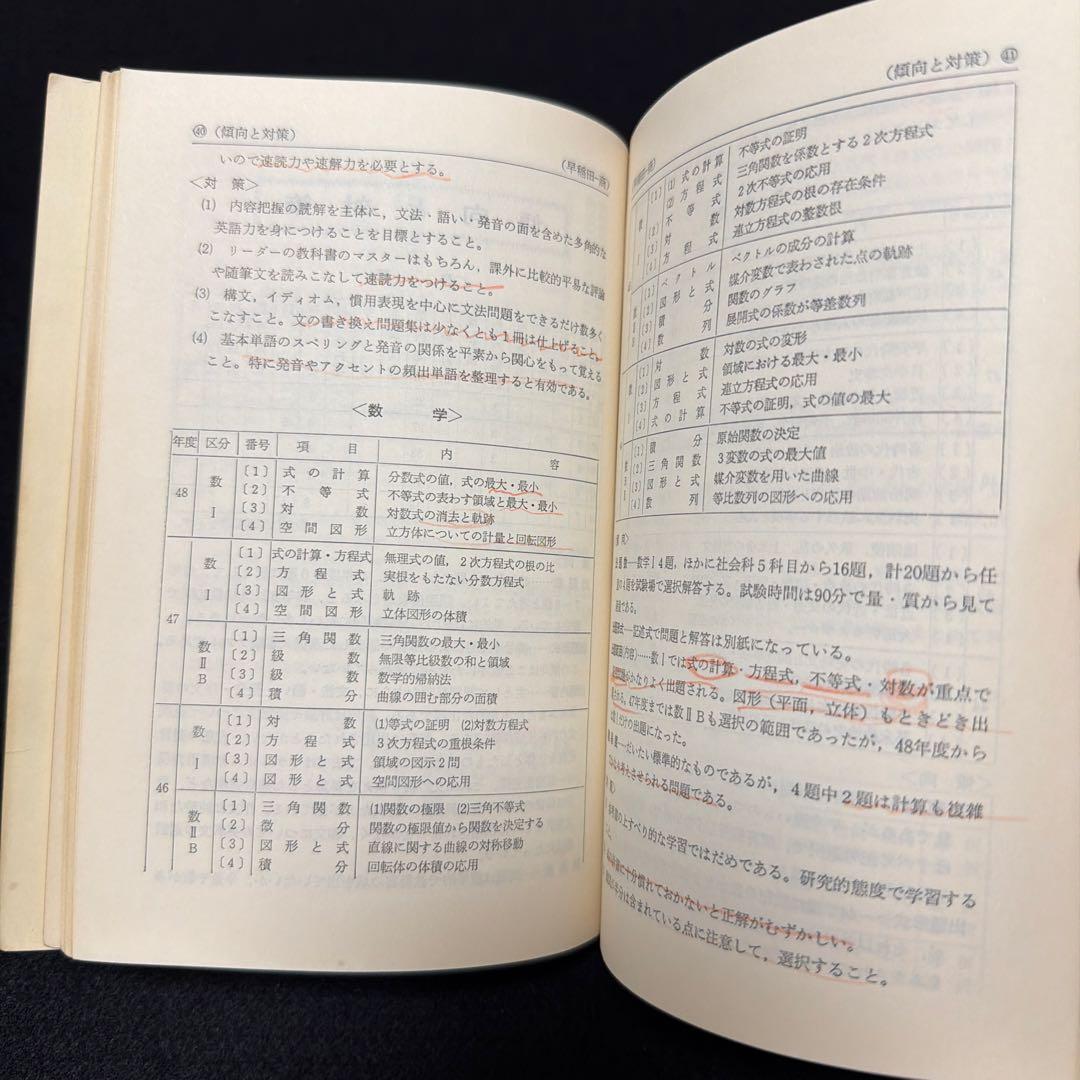 ㊵（傾向と対策）
（早稲田―商）
いので速読力や速解力を必要とする。
＜対　策＞
(1)　内容把握の読解を主体に，文法・語い・発音の面を含めた多角的な
英語力を身につけることを目標とすること。
(2)　リーダーの教科書のマスターはもちろん，課外に比較的平易な評論
や随筆文を読みこなして速読力をつけること。
(3)　構文，イディオム，慣用表現を中心に文法問題をできるだけ数多く
こなすこと。文の書き換え問題集は少なくとも１冊は仕上げること。
(4)　基本単語のスペリングと発音の関係を平素から関心をもって覚える
こと。特に発音やアクセントの頻出単語を整理すると有効である。
＜数　学＞
年度　区分　番号　項　目　内　容
48　数Ⅰ
〔1〕　式の計算　分数式の値，式の最大・最小
〔2〕　不等式　不等式の表わす領域と最大・最小
〔3〕　対数　対数式の消去と軌跡
〔4〕　空間図形　立方体についての計量と回転図形
47　数Ⅰ
〔1〕　式の計算・方程式　無理式の値，２次方程式の根の比
〔2〕　方程式　実根をもたない分数方程式
〔3〕　図形と式　軌跡
〔4〕　空間図形　立体図形の体積
数ⅡB
〔1〕　三角関数　三角関数の最大・最小
〔2〕　級数　無限等比級数の和と領域
〔3〕　級数　数学的帰納法
〔4〕　積分　曲線の囲む部分の面積
46　数Ⅰ
〔1〕　対数　(1)等式の証明　(2)対数方程式
〔2〕　方程式　３次方程式の重根条件
〔3〕　図形と式　領域の図示２問
〔4〕　図形と式　空間図形への応用
数ⅡB
〔1〕　三角関数　(1)関数の極限　(2)三角不等式
〔2〕　微分　関数の極限値から関数を決定する
〔3〕　図形と式　直線に関する曲線の対称移動
〔4〕　積分　回転体の体積の応用
（傾向と対策）㊶
〔1〕　(1)　式の計算　不等式の証明
(2)　方程式　三角関数を係数とする２次方程式
不等式　２次不等式の応用
〔3〕　対数　対数方程式の根の存在条件
〔4〕　方程式　連立方程式の整数根
ベクトル　ベクトルの成分の計算
図形と式　媒介変数で表わされた点の軌跡
〔3〕　積分　関数のグラフ
〔4〕　数列　展開式の係数が等差数列
〔1〕　対数　対数の式の変形
〔2〕　図形と式　領域における最大・最小
〔3〕　方程式　連立方程式の応用
〔4〕　式の計算　不等式の証明，式の値の最大
〔1〕　積分　原始関数の決定
〔2〕　三角関数　３変数の式の最大値
〔3〕　図形と式　媒介変数を用いた曲線
〔4〕　数列　等比数列の図形への応用
数学Ⅰ４題，ほかに社会科５科目から16題，計20題から任
４題を試験場で選択解答する。試験時間は90分で量・質から見て
である。
記述式で問題と解答は別紙になっている。
数Ⅰでは式の計算・方程式，不等式・対数が重点で
がかなりよく出題される。図形（平面，立体）もときどき出
47年度までは数ⅡＢも選択の範囲であったが，48年度から
だけの出題になった。
だいたい標準的なものであるが，４題中２題は計算も複雑
考えさせられる問題である。
の上すべり的な学習ではだめである。研究的態度で学習する
に十分慣れておかないと正解がむずかしい。
は含まれている点に注意して，選択すること。